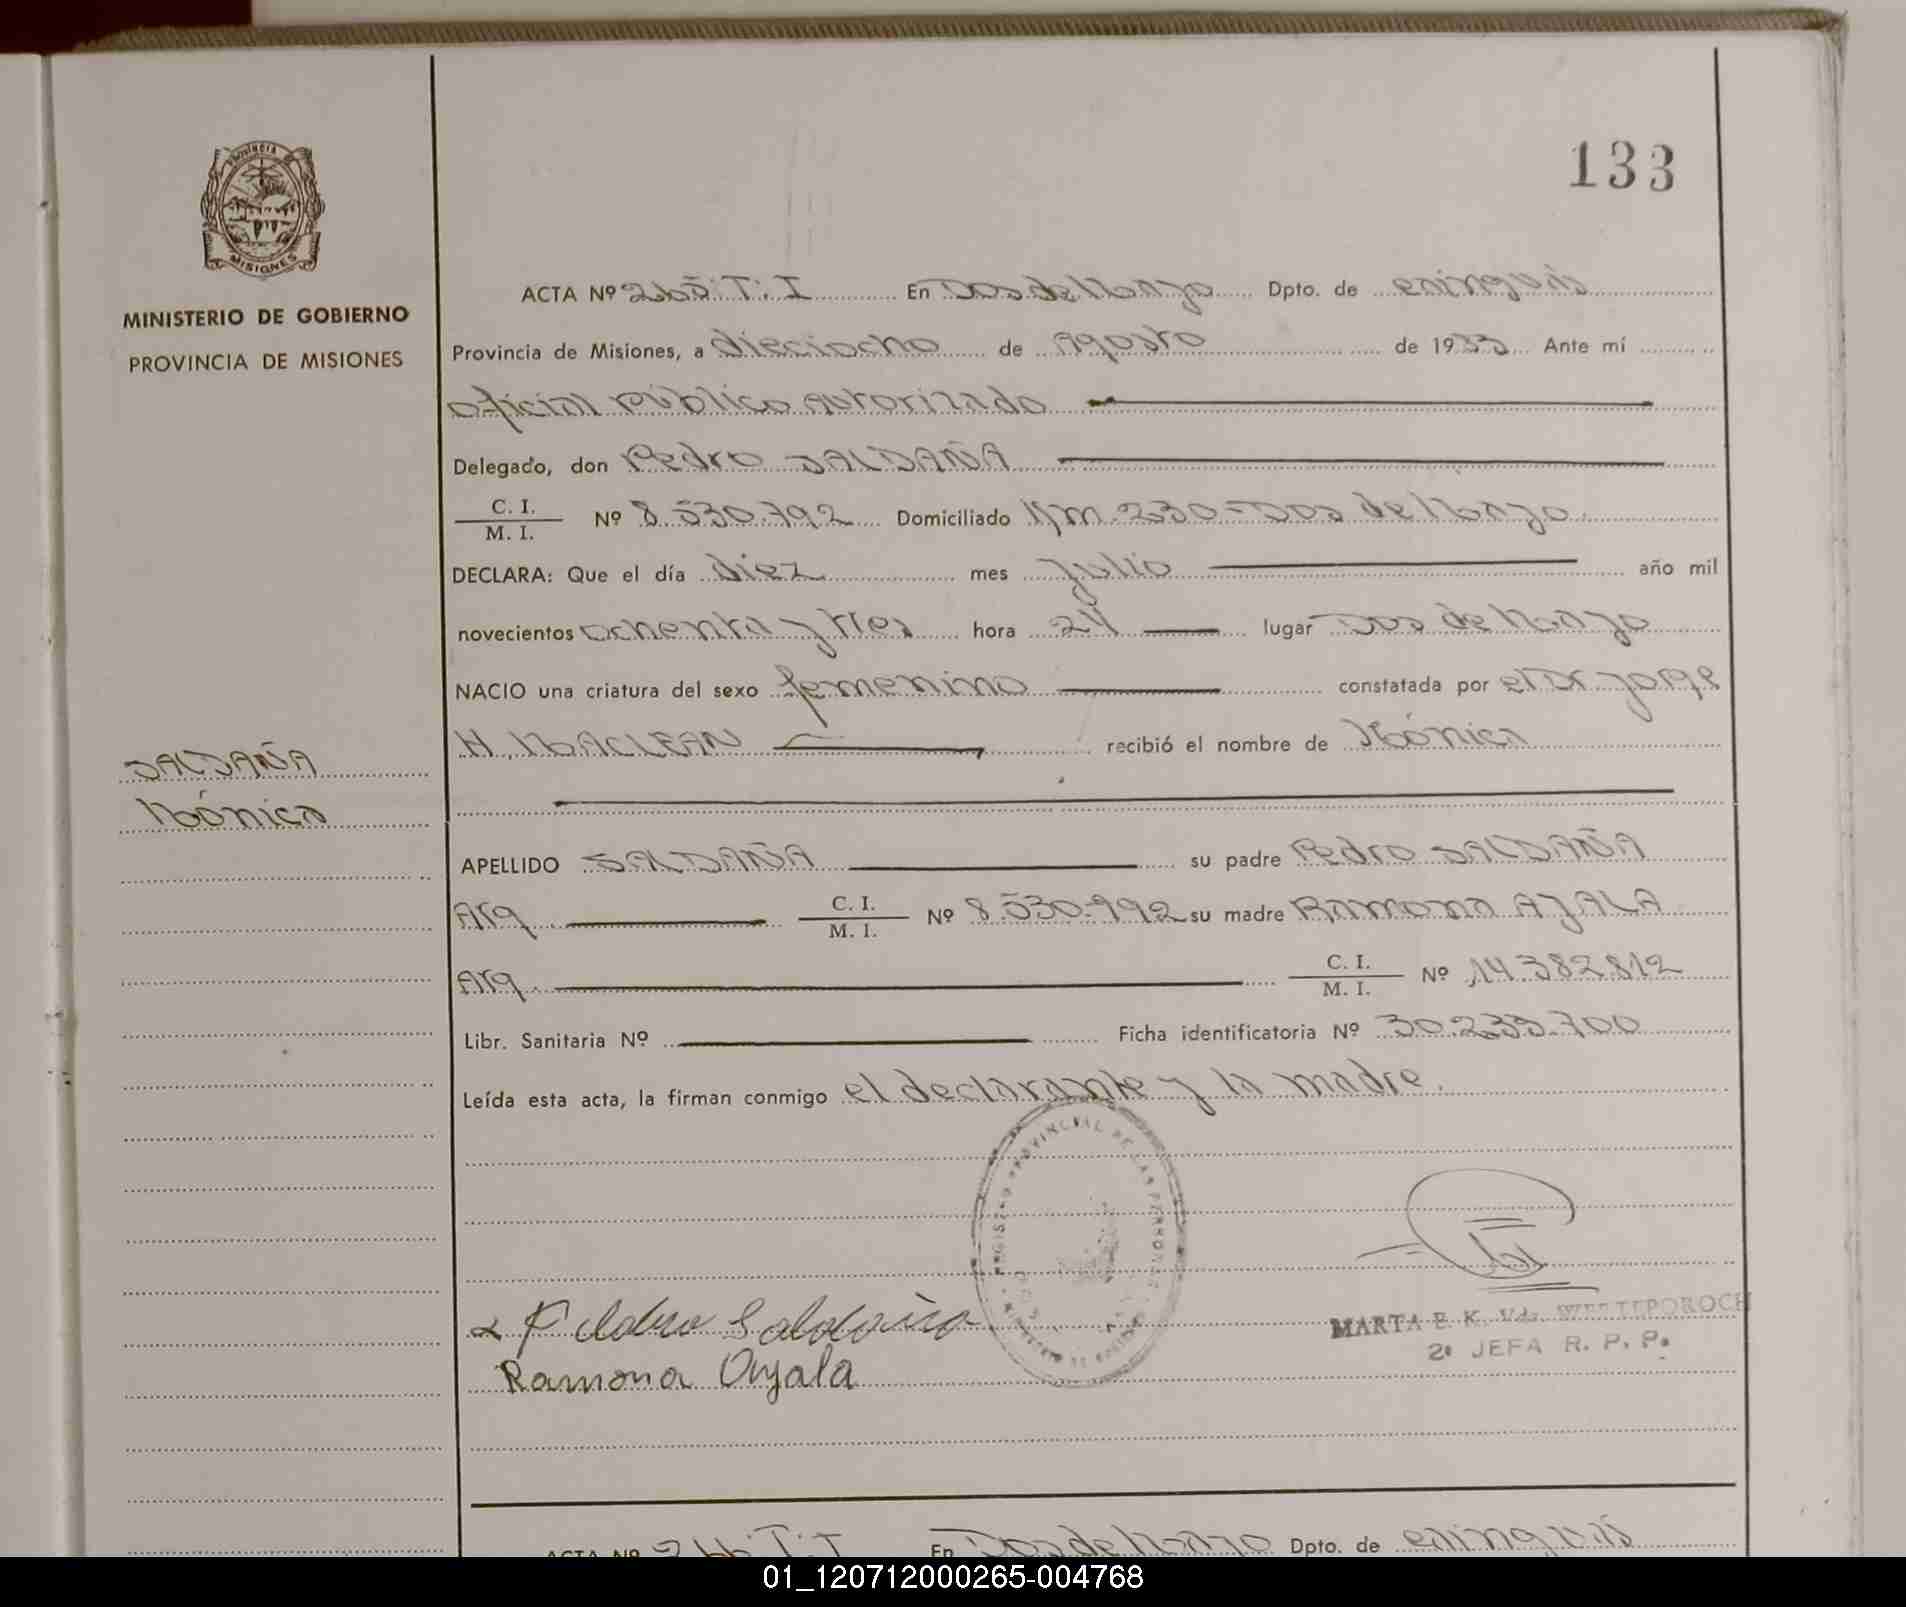 133
MINISTERIO DE GOBIERNO
PROVINCIA DE MISIONES
SALDAÑA
Mónica
ACTA Nº 265 T: I En Dos de Mayo Dpto. de cainguás
Provincia de Misiones, a dieciocho de Agosto de 1983 Ante mí
oficial público autorizado
Delegado, don Pedro SALDAÑA
C. I. / M. I. Nº 8.530.792 Domiciliado Km. 230 - Dos de Mayo
DECLARA: Que el día diez mes julio año mil
novecientos ochenta y tres hora 24 lugar Dos de Mayo
NACIO una criatura del sexo femenino constatada por el Dr. Jorge
H. MACLEAN recibió el nombre de Mónica
APELLIDO SALDAÑA su padre Pedro SALDAÑA
Arg C. I. / M. I. Nº 8.530.992 su madre Ramona AYALA
Arg. C. I. / M. I. Nº 14.382.812
Libr. Sanitaria Nº Ficha identificatoria Nº 30.233.700
Leída esta acta, la firman conmigo el declarante y la madre.
REGISTRO PROVINCIAL DE LAS PERSONAS
MARTA E. K. Vda.
2ª JEFA R. P. P.
Ramona Ayala
ACTA Nº 266 T: I En Dos de Mayo Dpto. de cainguás
01_120712000265-004768